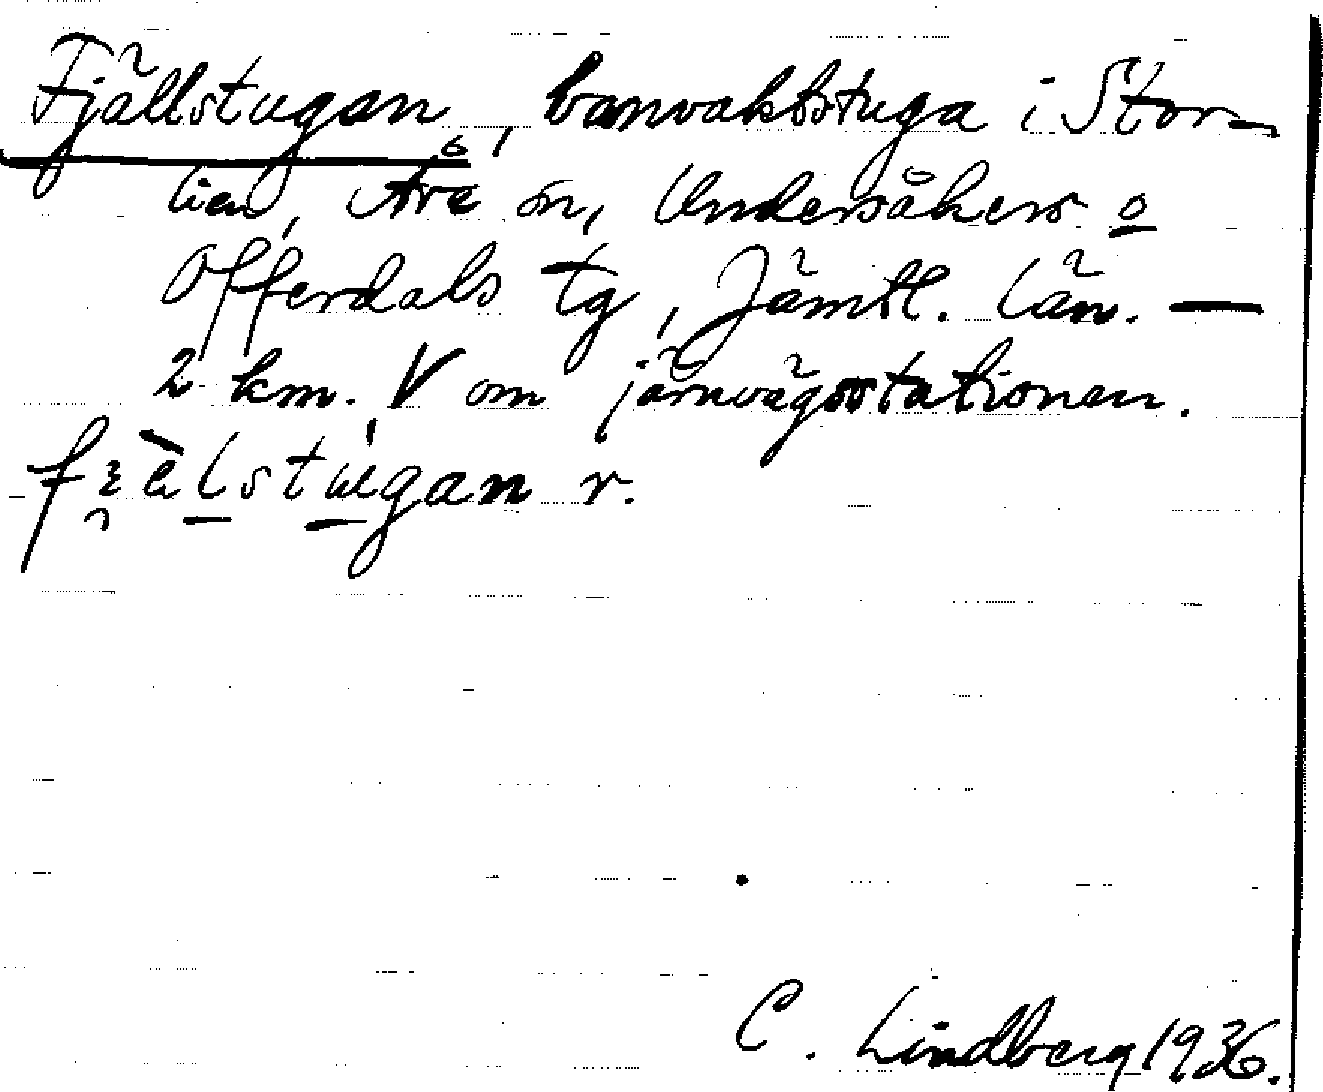 Fjällstugan, banvaktsstuga i Stor-
lien, Åre sn, Undersåkers o
Offerdals tg, Jämtl. län. —
2 km. V om järnvägsstationen.
stugan r.
C. Lindberg 1936.